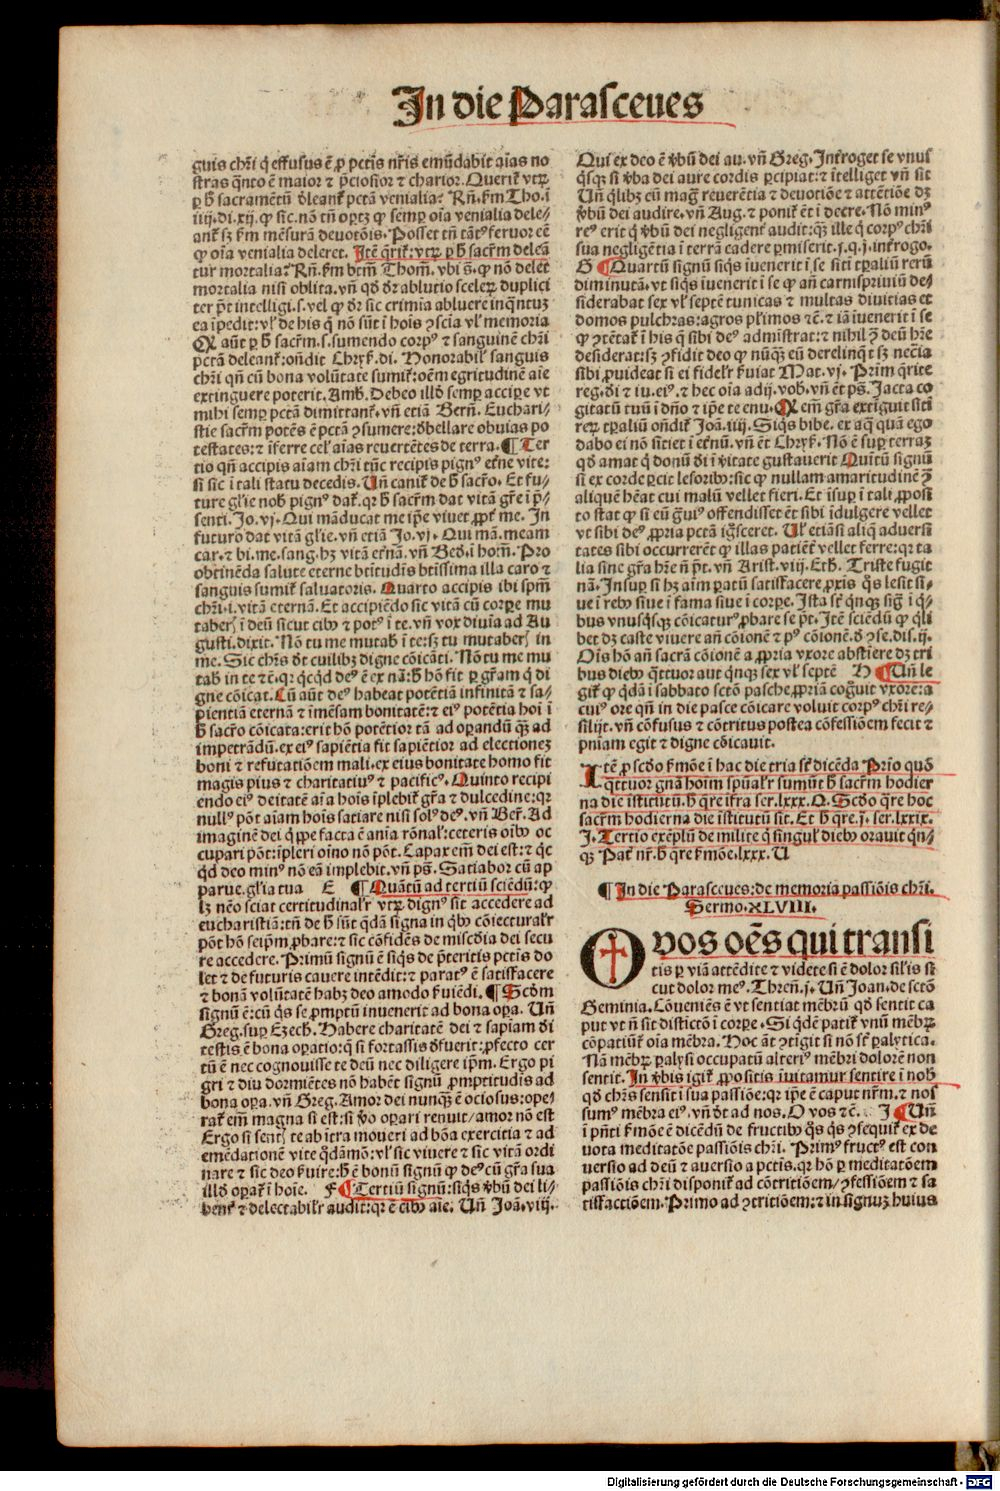 In die Parasceues
guis chr̃i q̃ effusus ẽ ꝓ pctĩs nr̃is emũdabit aĩas no
stras q̃nto ẽ maior ⁊ p̃ciosior ⁊ charior. Querit᷑ vtꝝ
ꝑ ħ sacramẽtũ ðleant᷑ pctã venialia? Rñ. ẜm Tho. ĩ
iiij. di. xij. ꝙ sic. nõ tñ oꝑtꝫ ꝙ semꝑ oĩa venialia dele⸗
ant᷑ sꝫ ẜm mẽsurã deuotõis. Posset tñ tãtꝰ feruor eẽ
ꝙ oĩa venialia deleret. Itẽ q̃rit᷑: vtꝝ ꝑ ħ sacr̃m deleã
tur mortalia? Rñ. ẜm btm̃ Thom̃. vbi s̃. ꝙ nõ delet
mortalia nisi oblita. vñ qð ðr ablutio sceleꝝ duplici
ter põt intelligi. s. vel ꝙ ðr sic crimĩa abluere inq̃ntuꝫ
ea ĩpedit: vł de his q̃ nõ sũt ĩ hoĩs ꝯscĩa vł memoria
Qꝛ aũt ꝑ ħ sacr̃m. s. sumendo corpꝰ ⁊ sanguinẽ chr̃i
pctã deleant᷑: oñdit Chryẜ. di. Honorabił sanguis
chr̃i qñ cũ bona volũtate sumit᷑: oẽm egritudinẽ aĩe
extinguere poterit. Amb. Debeo illð semꝑ acciꝑe vt
mihi semꝑ pctã dimittant᷑. vñ etiã Berñ. Euchari⸗
stie sacr̃m potẽs ẽ pctã ꝯsumere: ðbellare obuias po
testates: ⁊ ĩferre cel̛ aĩas reuertẽtes de terra. ¶ Ter
tio qñ accipis aĩam chr̃i tũc recipis pignꝰ etñe vite:
si sic ĩ tali statu decedis. Vñ canit᷑ de ħ sacr̃o. Et fu⸗
ture gl̃ie nob̛ pignꝰ dat᷑. qꝛ ħ sacr̃m dat vitã gr̃e ĩ p̃⸗
senti. Io. vj. Qui mãducat me ip̃e viuet ꝓpt᷑ me. In
futuro dat vitã gl̃ie. vñ etiã Jo. vj. Qui mã. meam
car. ⁊ bi. me. sang. hꝫ vitã etñã. vñ Beð. ĩ hom̃. Pro
obtinẽda salute eterne btĩtudĩs btĩssima illa caro ⁊
sanguis sumit᷑ saluatoris. Quarto accipis ibi spm̃
chr̃i. i. vitã eternã. Et accipiẽdo sic vitã cũ corꝑe mu
taberꝭ ĩ deũ sicut cibꝰ ⁊ potꝰ ĩ te. vñ vox diuĩa ad Au
gusti. dixit. Nõ tu me mutab̛ ĩ te: sꝫ tu mutaberꝭ in
me. Sic chr̃s ðt cuilibꝫ digne cõicãti. Nõ tu me mu
tab̛ in te ⁊c̃. qꝛ qcq̃d deꝰ ẽ ex nã: ħ hõ fit ꝑ gr̃am q̃ di
gne cõicat. Cũ aũt deꝰ habeat potẽtiã infinitã ⁊ sa⸗
pientiã eternã ⁊ ĩmẽsam bonitatẽ: ⁊ eiꝰ potẽtia hoĩ ĩ
ħ sacr̃o cõicata: erit hõ potẽtior tã ad oꝑandũ q̃ꝫ ad
impetrãdũ. ex eiꝰ sapiẽtia fit sapiẽtior ad electioneꝫ
boni ⁊ refutatiõem mali. ex eius bonitate homo fit
magis pius ⁊ charitatiuꝰ ⁊ pacificꝰ. Quinto recipi
endo eiꝰ deitatẽ aĩa hoĩs ĩplebit᷑ gr̃a ⁊ dulcedine: qꝛ
nullꝰ põt aĩam hoĩs satiare nisi solꝰ deꝰ. vñ Ber̃. Ad
imaginẽ dei q̃ppe facta ẽ anĩa rõnał: ceteris oĩbꝰ oc
cupari põt: ĩpleri oĩno nõ põt. Capax em̃ dei est: ⁊ qc
qð deo minꝰ nõ eã implebit. vñ pš. Satiabor cũ ap
parue. gl̃ia tua E ¶ Quãtũ ad tertiũ sciẽdũ: ꝙ
lꝫ nẽo sciat certitudinałr vtꝝ dignꝰ sit accedere ad
eucharistiã: tñ de ħ sũt q̃dã signa in qbꝰ cõiecturałr
põt hõ seip̃m ꝓbare: ⁊ sic cõfidẽs de mis̃cdĩa dei secu
re accedere. Primũ signũ ẽ siqs de p̃teritis pctĩs do
let ⁊ de futuris cauere intẽdit: ⁊ paratꝰ ẽ satiffacere
⁊ bonã volũtatẽ habꝫ deo amodo ẜuiẽdi. ¶ Scðm
signũ ẽ: cũ qs se ꝓmptũ inuenerit ad bona oꝑa. Vñ
Greg. suꝑ Ezech. Habere charitatẽ dei ⁊ sapĩam ði
testis ẽ bona oꝑatio: q̃ si fortassis ðfuerit: ꝓfecto cer
tũ ẽ nec cognouisse te deũ nec diligere ip̃m. Ergo pi
gri ⁊ diu dormiẽtes nõ habẽt signũ ꝓmptitudis ad
bona oꝑa. vñ Greg. Amor dei nunq̃ꝫ ẽ ociosus: oꝑe⸗
rat᷑ em̃ magna si est: si ꝟo oꝑari renuit/ amor nõ est
Ergo si sentꝭ te ab ĩtra moueri ad bõa exercitia ⁊ ad
emẽdationẽ vite q̃dãmõ: vł sic viuere ⁊ sic vitã ordi
nare ⁊ sic deo ẜuire: ħ ẽ bonũ signũ ꝙ deꝰ cũ gr̃a sua
illð oꝑat᷑ ĩ hoĩe. F ¶ Tertiũ signũ: siqs ꝟbũ dei li⸗
bent᷑ ⁊ delectabiłr audit: qꝛ ẽ cibꝰ aĩe. Vñ Joã. viij.
Qui ex deo ẽ ꝟbũ dei au. vñ Greg. Int᷑roget se vnuſ
qsqꝫ si ꝟba dei aure cordis ꝑcipiat: ⁊ ĩtelliget vñ sit
Vñ qlibꝫ cũ mag̃ reuerẽtia ⁊ deuotiõe ⁊ attẽtiõe dꝫ
ꝟbũ dei audire. vñ Aug. ⁊ ponit᷑ ẽt ĩ decre. Nõ minꝰ
reꝰ erit q̃ ꝟbũ dei negligent᷑ audit: q̃ꝫ ille q̃ corpꝰ chr̃i
sua negligẽtia ĩ terrã cadere ꝑmiserit. j. q. j. int᷑rogo.
G ¶ Quartũ signũ siqs ĩuenerit ĩ se sitĩ tꝑaliũ rerũ
diminutã. vt siqs ĩuenerit ĩ se ꝙ añ carnispriuiũ de⸗
siderabat sex vł septẽ tunicas ⁊ multas diuitias et
domos pulchras: agros pl̃imos ⁊c̃. ⁊ iã ĩuenerit ĩ se
ꝙ ꝯtẽtat᷑ ĩ his q̃ sibi deꝰ admĩstrat: ⁊ nihil ꝯ̃ deũ hr̃e
desiderat: sꝫ ꝯfidit deo ꝙ nũq̃ꝫ eũ derelinq̃t sꝫ nec̃ia
sibi ꝓuideat si ei fidełr ẜuiat Mat. vj. Prim̃ q̃rite
reg. ði ⁊ iu. eiꝰ. ⁊ hec oĩa adij. vob̛. vñ ẽt pš. Jacta co
gitatũ tuũ ĩ dñ̃o ⁊ ip̃e te enu. Qꝛ em̃ gr̃a extĩguit sitĩ
reꝝ tꝑaliũ oñdit᷑ Joã. iiij. Siqs bibe. ex aq̃ quã ego
dabo ei nõ sitiet ĩ etñũ. vñ ẽt Chryẜ. Nõ ẽ suꝑ terraꝫ
qð amat q̃ donũ ði ĩ ꝟitate gustauerit Quĩtũ signũ
si ex corde ꝑcit lesoribꝰ: sic ꝙ nullam amaritudinẽ ꝯ̃
aliquẽ hẽat cui malũ vellet fieri. Et ĩsuꝑ ĩ tali ꝓposi
to stat ꝙ si eũ g̃uiꝰ offendisset ẽt sibi ĩdulgere vellet
vt sibi deꝰ ꝓpria pctã ig̃sceret. Vł etiãsi aliq̃ aduersi
tates sibi occurrerẽt ꝙ illas patiẽt᷑ vellet ferre: qꝛ ta
lia sine gr̃a hr̃e ñ põt. vñ Arist. viij. Eth. Triste fugit
nã. Insuꝑ si hꝫ aĩm ꝑatũ satiffacere ꝓxĩs q̃s lesit si⸗
ue ĩ rebꝰ siue ĩ fama siue ĩ corꝑe. Ista st̃ qnqꝫ sig̃ ĩ q̃⸗
bus vnusqsqꝫ cõicaturꝰ ꝓbare se põt. Itẽ sciẽdũ ꝙ qli
bet dꝫ caste viuere añ cõionẽ ⁊ pꝰ cõionẽ. ð ꝯse. dis. ij.
Oĩs hõ añ sacrã cõionẽ a ꝓpria vxore abstĩere dꝫ tri
bus diebꝰ qttuor aut qnqꝫ sex vł septẽ H ¶ Vñ le
git᷑ ꝙ q̃dã ĩ sabbato sctõ pasche ꝓpriã cog̃uit vxorẽ: a
cuiꝰ ore qñ in die pasce cõicare voluit corpꝰ chr̃i re⸗
silijt. vñ cõfusus ⁊ cõtritus postea cõfessiõem fecit ⁊
pñiam egit ⁊ digne cõicauit.
Itẽ ꝓ scðo ẜmõe ĩ hac die tria st̃ dicẽda Prĩo quõ
qttuor gñã hoĩm spũałr sumũt ħ sacr̃m hodier
na die ĩstitutũ. ħ q̃re ĩfra ser. lxxx. Q. Scðo q̃re hoc
sacr̃m hodierna die ĩstitutũ sit. Et ħ q̃re. j. ser. lxxix.
J. Tertio exẽplũ de milite q̃ singuł diebꝰ orauit qn⸗
qꝫ Pat᷑ nr̃. ħ q̃re ẜmõe. lxxx. U
¶ In die Parasceues: de memoria passiõis chr̃i.
Sermo. XLVIII.
O vos oẽs qui transi
tis ꝑ viã attẽdite ⁊ videte si ẽ dolor sil̃is st̃
cut dolor meꝰ. Threñ. j. Vñ Joan. de sctõ
Geminia. Cõueniẽs ẽ vt sentiat mẽbrũ qð sentit ca
put vt ñ sit distictõ ĩ corꝑe. Si q̃dẽ patit᷑ vnũ mẽbꝝ
cõpatiũt᷑ oĩa mẽbra. Hoc ãt ꝯtigit si nõ st̃ ꝑalytica.
Nã mẽbꝝ ꝑalysi occupatũ alteriꝰ mẽbri dolorẽ non
sentit. In ꝟbis igit᷑ ꝓpositis ĩuitamur sentire ĩ nob̛
qð chr̃s sensit ĩ sua passiõe: qꝛ ip̃e ẽ caput nr̃m. ⁊ nos
sumꝰ mẽbra eiꝰ. vñ ðt ad nos. O vos ⁊c̃. J ¶ Vñ
ĩ pñti ẜmõe ẽ dicẽdũ de fructibꝰ q̃s q̃s ꝯsequit᷑ ex de
uota meditatõe passiõis chr̃i. Primꝰ fructꝰ est con
uersio ad deũ ⁊ auersio a pctĩs. qꝛ hõ ꝑ meditatõem
passiõis chr̃i disponit᷑ ad cõtritiõem/ ꝯfessiõem ⁊ sa
tiffactiõem. Primo ad ꝯtritiõem: ⁊ in signuꝫ huius
Digitalisierung gefördert durch die Deutsche Forschungsgemeinschaft - DFG